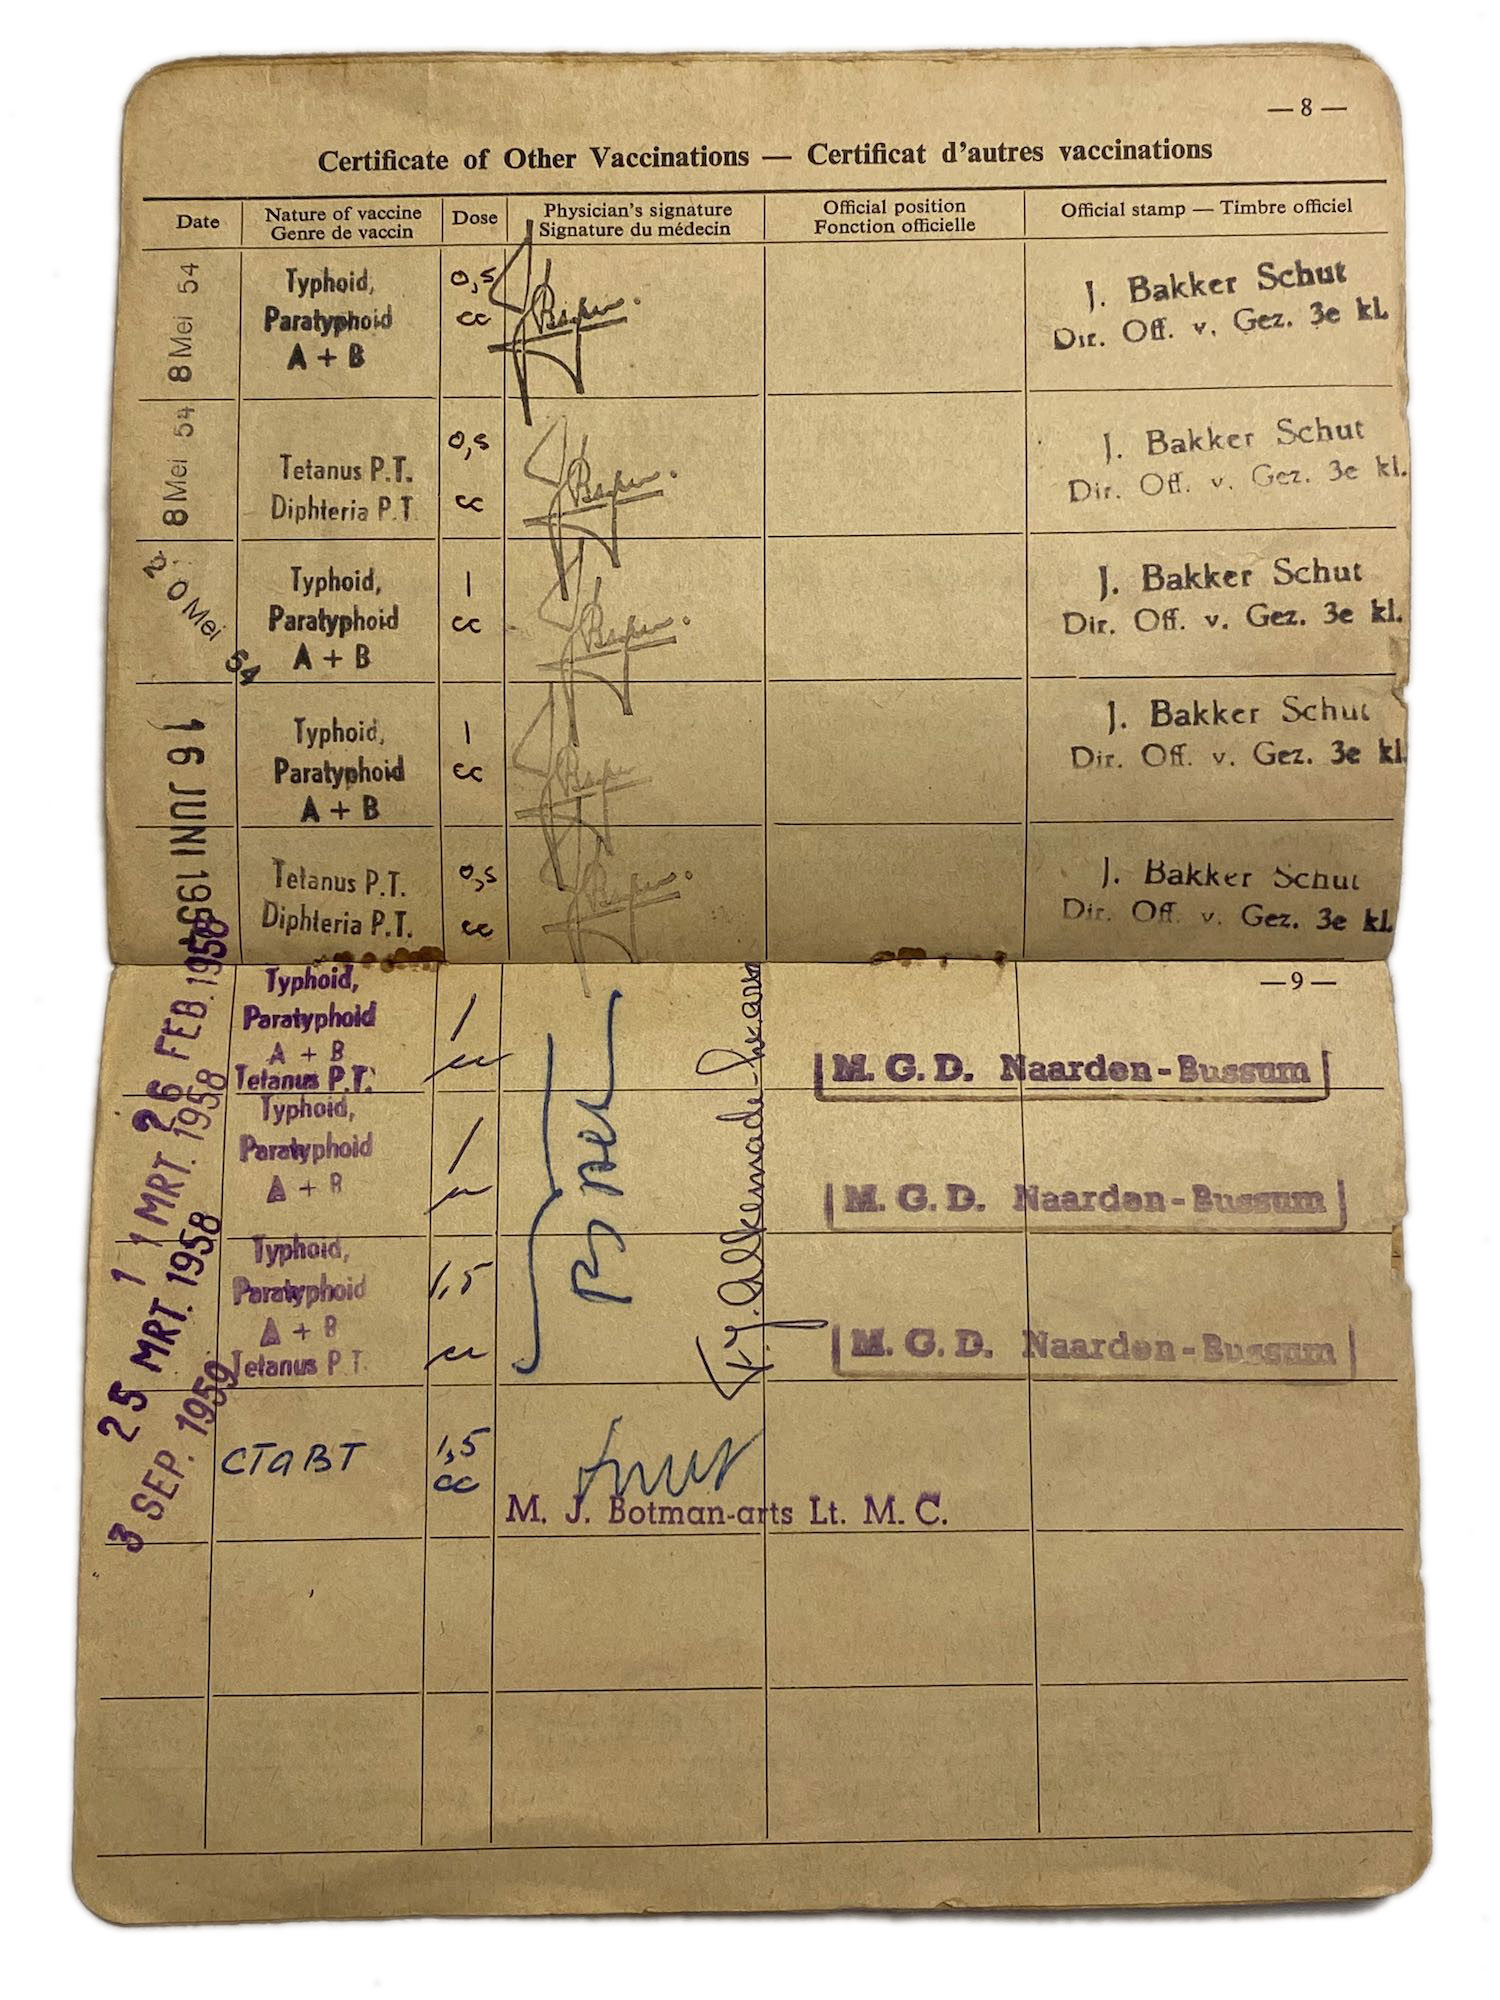 — 8 —
Certificate of Other Vaccinations — Certificat d'autres vaccinations
Date
Nature of vaccine
Genre de vaccin
Dose
Physician's signature
Signature du médecin
Official position
Fonction officielle
Official stamp — Timbre officiel
8 Mei 54
Typhoid,
Paratyphoid
A + B
0,5
cc
J. Bakker Schut
Dir. Off. v. Gez. 3e kl.
8 Mei 54
Tetanus P.T.
Diphteria P.T.
0,5
cc
J. Bakker Schut
Dir. Off. v. Gez. 3e kl.
20 Mei 54
Typhoid,
Paratyphoid
A + B
1
cc
J. Bakker Schut
Dir. Off. v. Gez. 3e kl.
16 JUNI 1954
Typhoid,
Paratyphoid
A + B
1
cc
J. Bakker Schut
Dir. Off. v. Gez. 3e kl.
Tetanus P.T.
Diphteria P.T.
0,5
cc
J. Bakker Schut
Dir. Off. v. Gez. 3e kl.
— 9 —
26 FEB. 1958
Typhoid,
Paratyphoid
A + B
Tetanus P.T.
1
cc
M. G. D. Naarden-Bussum
11 MRT. 1958
Typhoid,
Paratyphoid
A + B
1
cc
M. G. D. Naarden-Bussum
25 MRT. 1958
Typhoid,
Paratyphoid
A + B
Tetanus P.T.
1,5
cc
M. G. D. Naarden-Bussum
3 SEP. 1959
CTaBT
1,5
cc
M. J. Botman-arts Lt. M. C.